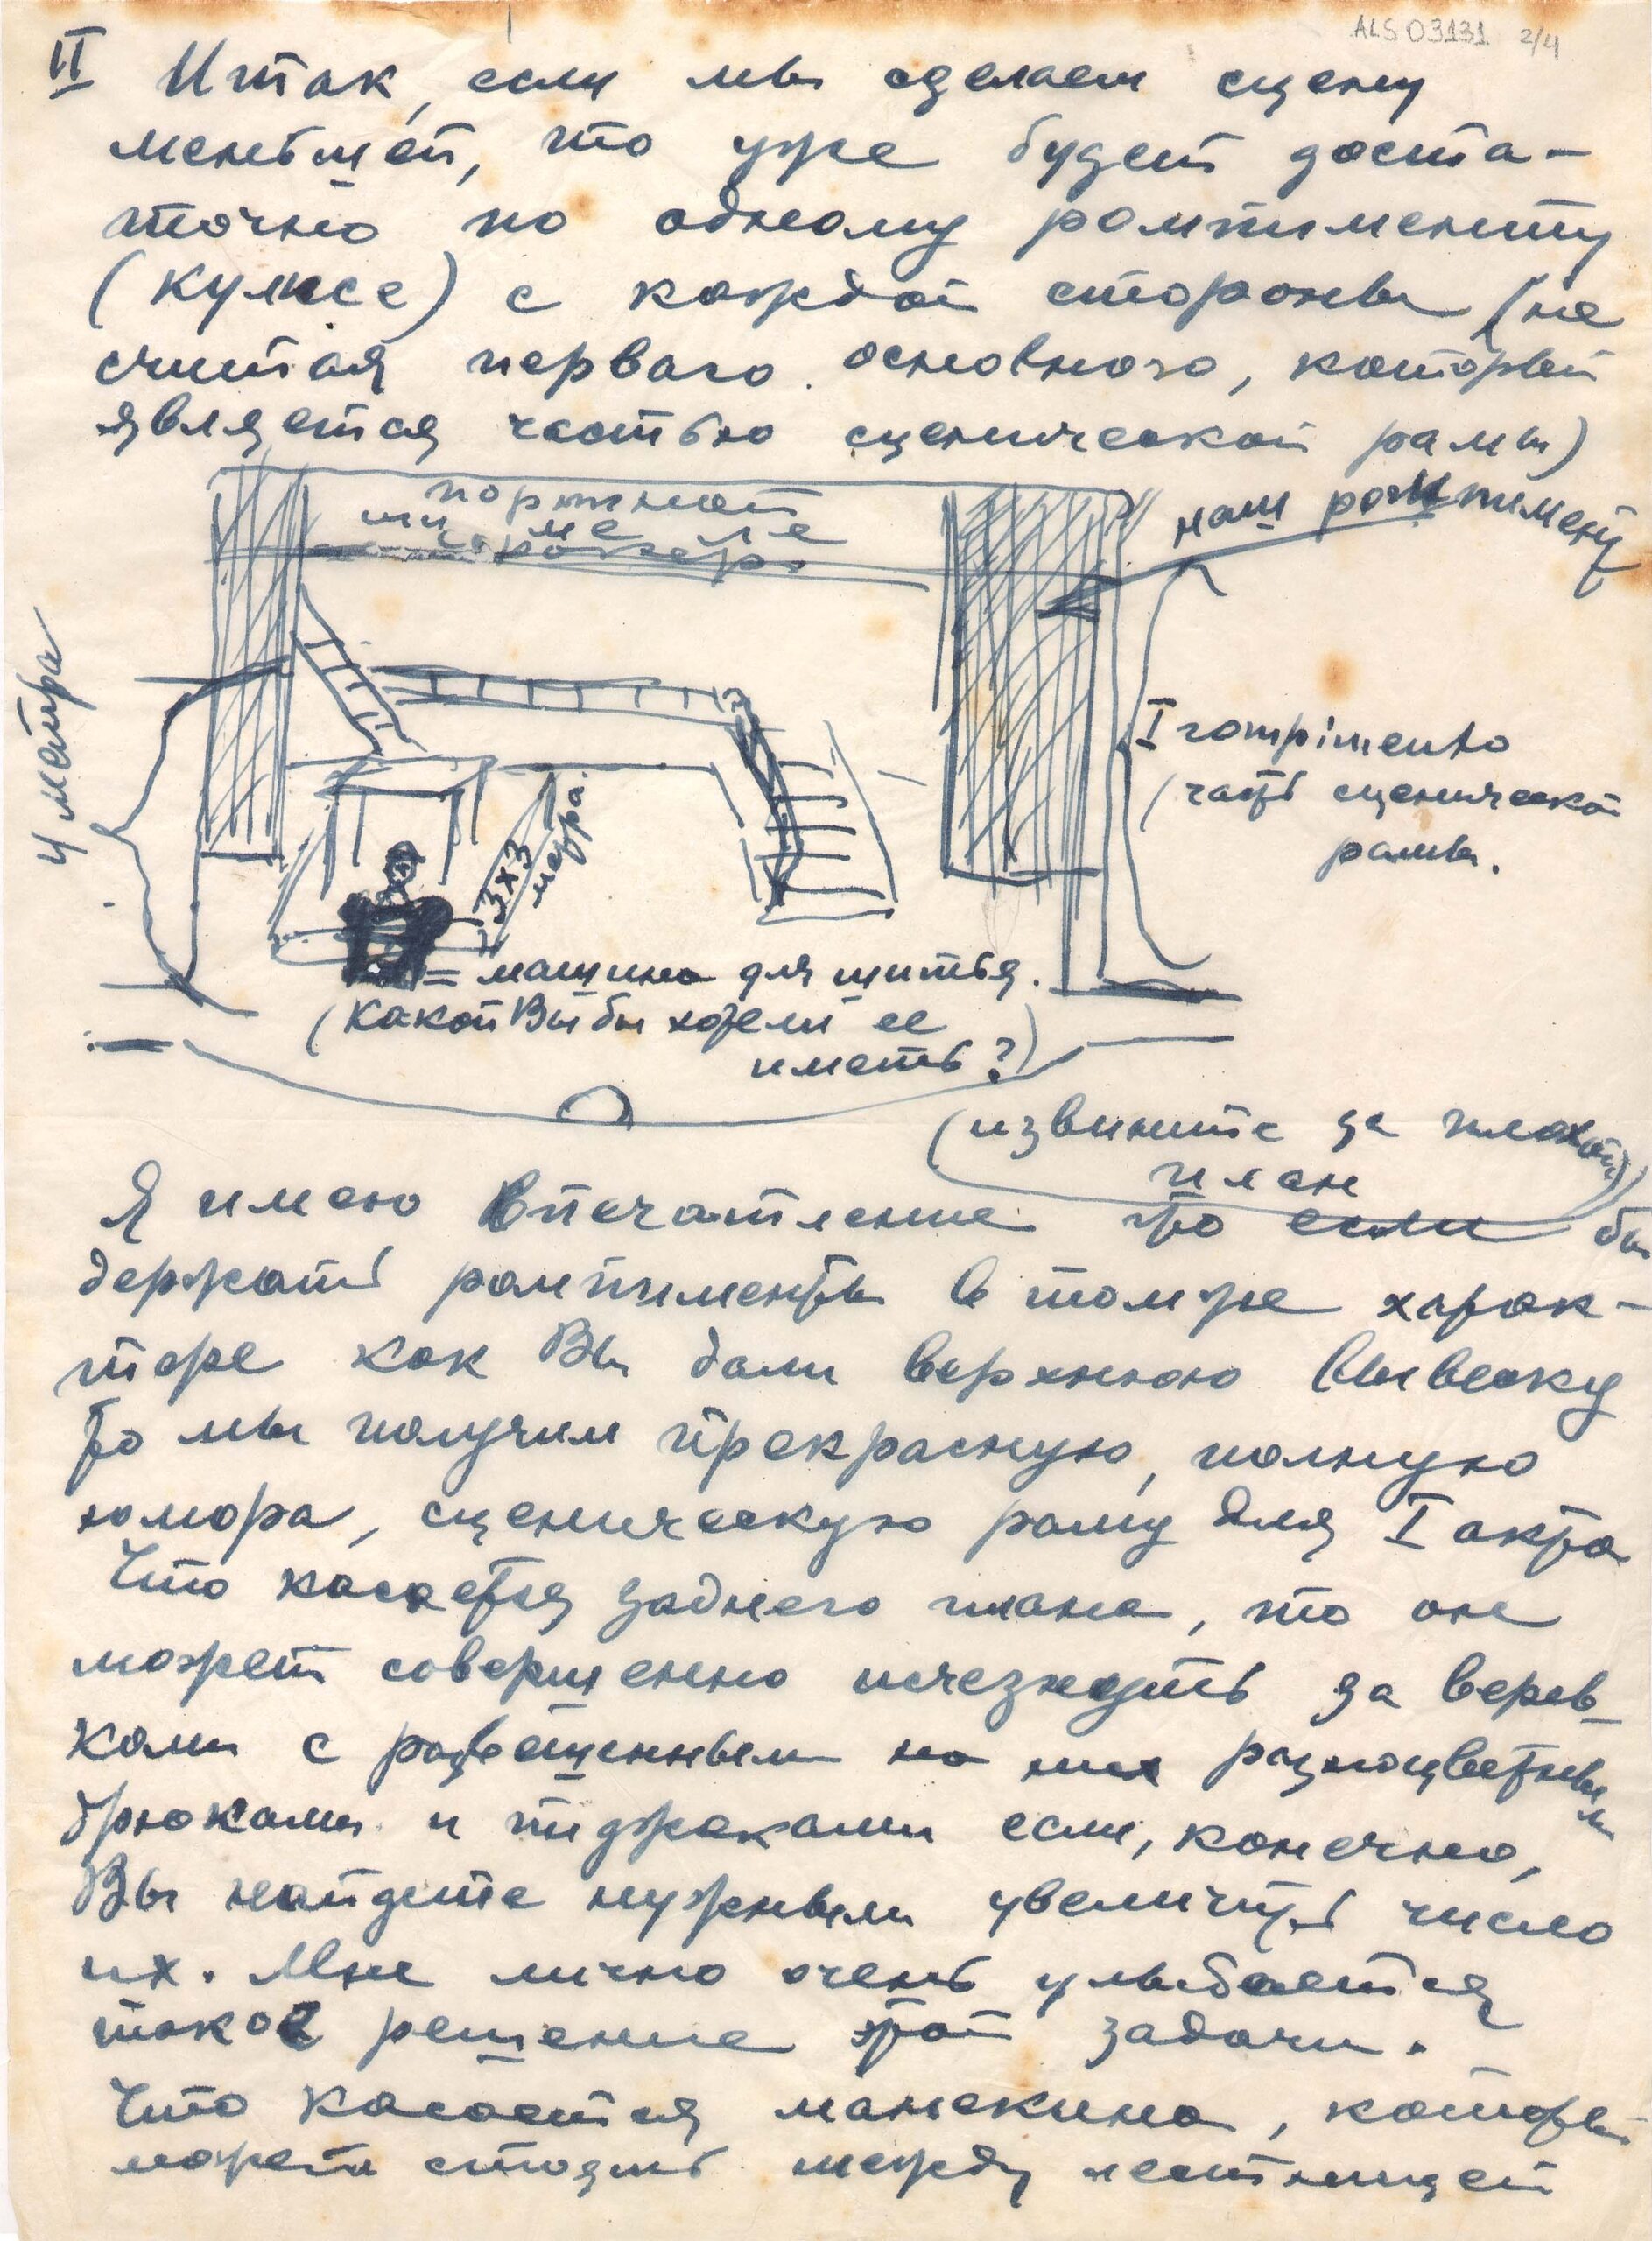 ALS 03131 2/4
II Итак, если мы сделаем сцену
меньшей, то уже будет доста-
точно по одному ромпименту
(кулисе) с каждой стороны (не
считая первого основного, который
является частью сценической рамы)
портной
наш ромпимент
4 метра
I rompimento
(часть сценической
рамы.
3x3
метра.
= машина для шитья.
(Какой Вы бы хотели ее
иметь?)
(извините за плохой)
план
Я имею впечатление что если бы
держать ромпименты в том же харак-
тере как Вы дали верхнюю вывеску
то мы получим прекрасную, полную
юмора, сценическую раму для I акта
Что касается заднего плана, то он
может совершенно исчезнуть за верев-
ками с развешенными на них разноцветными
брюками и пиджаками если, конечно,
Вы найдете нужным увеличить число
их. Мне лично очень улыбается
такое решение этой задачи.
Что касается манекена, который
может стоять между лестницей